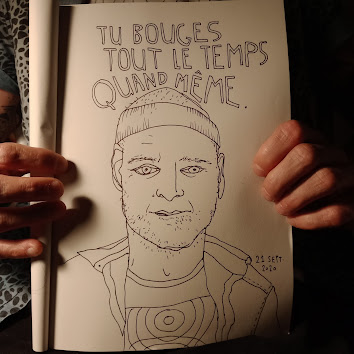 TU BOUGES
TOUT LE TEMPS
QUAND MÊME.
21 SEPT.
2020